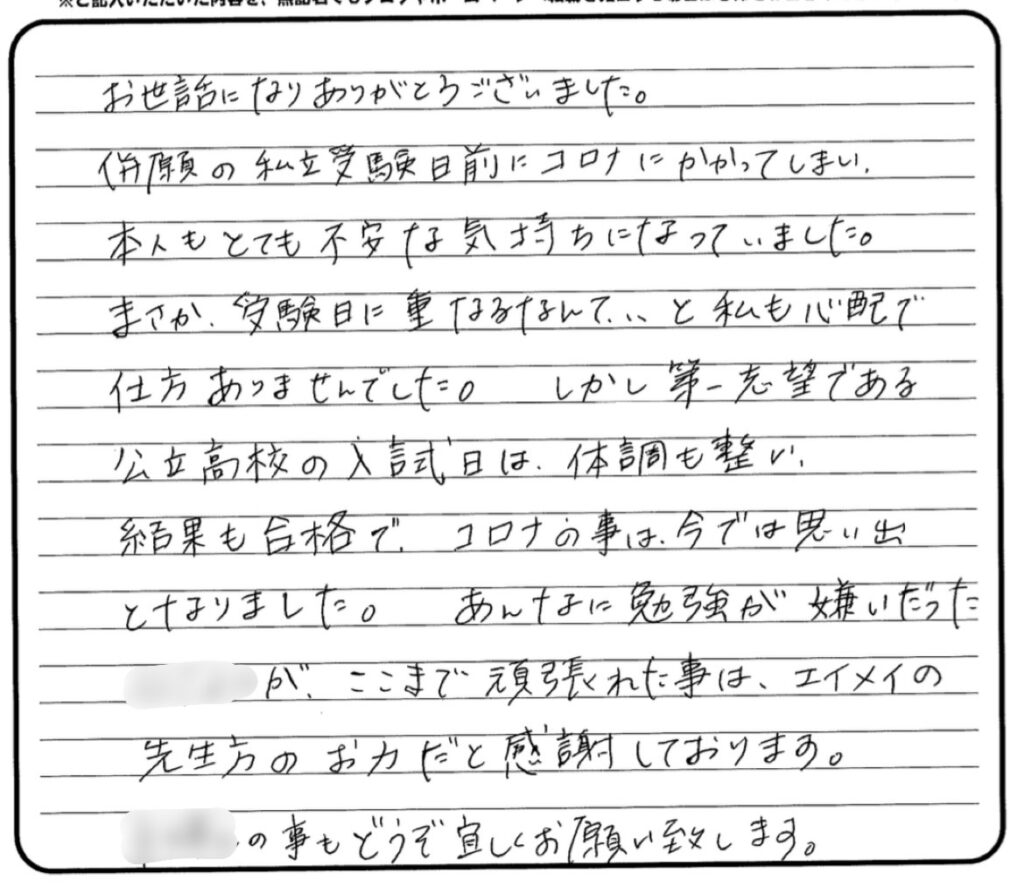 お世話になりありがとうございました。
併願の私立受験日前にコロナにかかってしまい、
本人もとても不安な気持ちになっていました。
まさか、受験日に重なるなんて、、、と私も心配で
仕方ありませんでした。 しかし第一志望である
公立高校の入試日は、体調も整い、
結果も合格で、コロナの事は、今では思い出
となりました。 あんなに勉強が嫌いだった
が、ここまで頑張れた事は、エイメイの
先生方のお力だと感謝しております。
の事もどうぞ宜しくお願い致します。